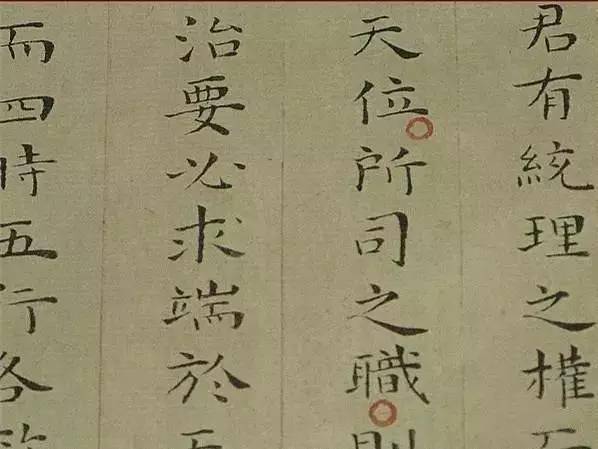 君有統理之權
天位所司之職則
治要必求端於
而四時五行各